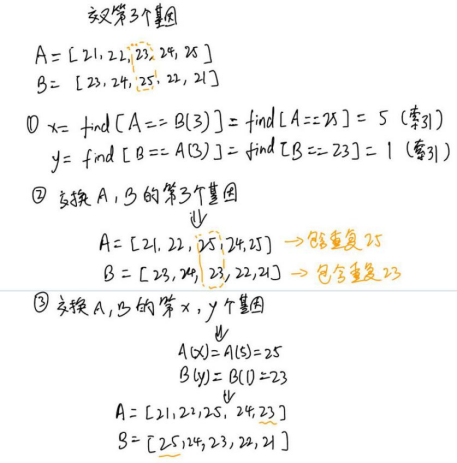 交叉第3个基因
A=[21,22,23,24,25]
B=[23,24,25,22,21]
① x=find[A==B(3)]=find[A==25]=5 (索引)
y=find[B==A(3)]=find[B==23]=1 (索引)
② 交换A,B的第3个基因
⇓
A=[21,22,25,24,25] →包含重复25
B=[23,24,23,22,21] →包含重复23
③ 交换A,B的第x,y个基因
⇓
A(x)=A(5)=25
B(y)=B(1)=23
⇓
A=[21,22,25,24,23]
B=[25,24,23,22,21]